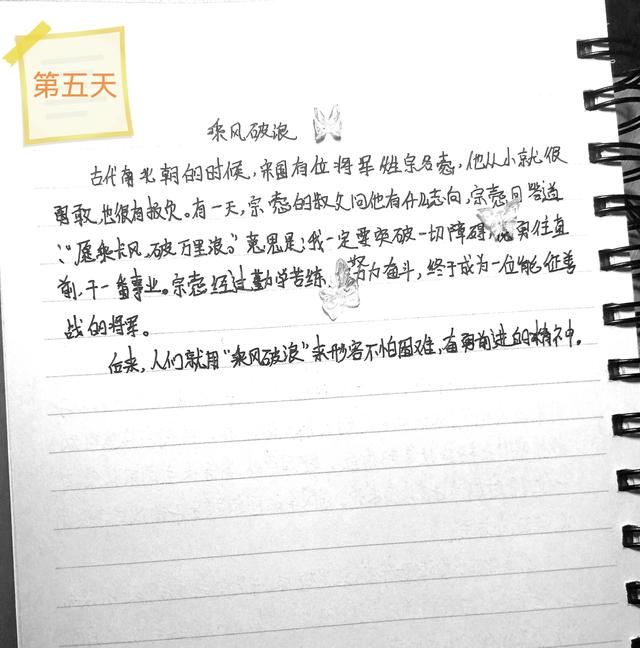 第五天
乘风破浪
古代南北朝的时候，宋国有位将军姓宗名悫，他从小就很
勇敢，也很有报负。有一天，宗悫的叔父问他有什么志向，宗悫回答道
："愿乘长风，破万里浪。"意思是：我一定要突破一切障碍，勇往直
前，干一番事业。宗悫经过勤学苦练，努力奋斗，终于成为一位能征善
战的将军。
后来，人们就用"乘风破浪"来形容不怕困难，奋勇前进的精神。